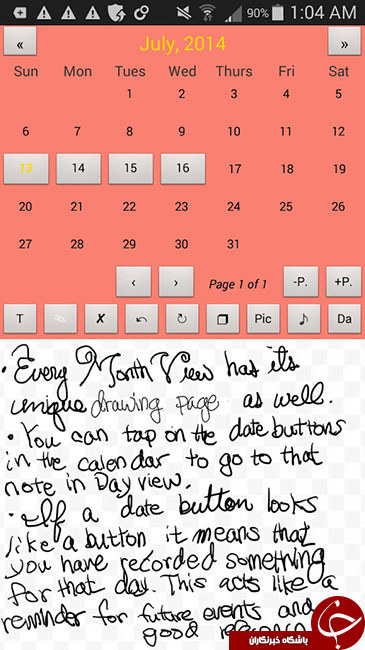 90% 1:04 AM
« July, 2014 »
Sun Mon Tues Wed Thurs Fri Sat
1 2 3 4 5
6 7 8 9 10 11 12
13 14 15 16 17 18 19
20 21 22 23 24 25 26
27 28 29 30 31
‹ › Page 1 of 1 -P. +P.
T ✗ Pic ♪ Da
• Every Month View has its
unique drawing page as well.
• You can tap on the date buttons
in the calendar to go to that
note in Day view.
• If a date button looks
like a button it means that
you have recorded something
for that day. This acts like a
reminder for future events and
good
باشگاه خبرنگاران